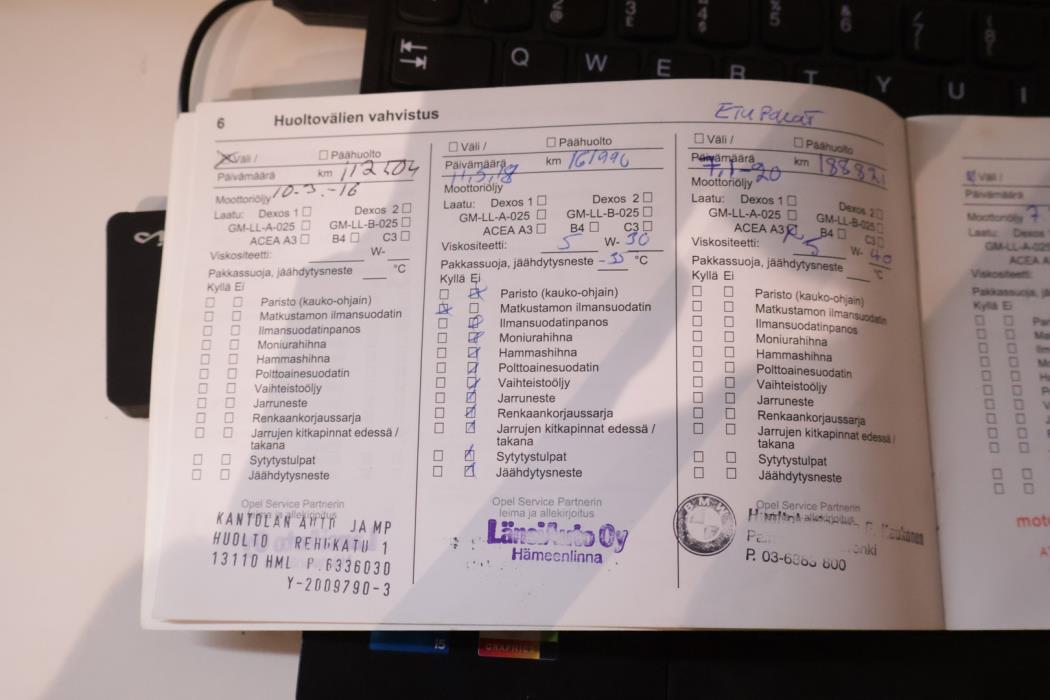 Q W E R T Y U I
6 Huoltovälien vahvistus
ETUPALAT
☒ Väli / ☐ Päähuolto
Päivämäärä km 112504
10-3.-16
Moottoriöljy
Laatu: Dexos 1 ☐ Dexos 2 ☐
GM-LL-A-025 ☐ GM-LL-B-025 ☐
ACEA A3 ☐ B4 ☐ C3 ☐
Viskositeetti: W-
Pakkassuoja, jäähdytysneste °C
Kyllä Ei
☐ ☐ Paristo (kauko-ohjain)
☐ ☐ Matkustamon ilmansuodatin
☐ ☐ Ilmansuodatinpanos
☐ ☐ Moniurahihna
☐ ☐ Hammashihna
☐ ☐ Polttoainesuodatin
☐ ☐ Vaihteistoöljy
☐ ☐ Jarruneste
☐ ☐ Renkaankorjaussarja
☐ ☐ Jarrujen kitkapinnat edessä /
takana
☐ ☐ Sytytystulpat
☐ ☐ Jäähdytysneste
Opel Service Partnerin
leima ja allekirjoitus
KANTOLAN AUTO JA MP
HUOLTO REHKATU 1
13110 HML P.6336030
Y-2009790-3
☐ Väli / ☐ Päähuolto
Päivämäärä km 161996
11,5,18
Moottoriöljy
Laatu: Dexos 1 ☐ Dexos 2 ☐
GM-LL-A-025 ☐ GM-LL-B-025 ☐
ACEA A3 ☐ B4 ☐ C3 ☐
Viskositeetti: 5 W- 30
Pakkassuoja, jäähdytysneste -35 °C
Kyllä Ei
☐ ☒ Paristo (kauko-ohjain)
☒ ☐ Matkustamon ilmansuodatin
☐ ☒ Ilmansuodatinpanos
☐ ☒ Moniurahihna
☐ ☒ Hammashihna
☐ ☒ Polttoainesuodatin
☐ ☒ Vaihteistoöljy
☐ ☒ Jarruneste
☐ ☒ Renkaankorjaussarja
☐ ☒ Jarrujen kitkapinnat edessä /
takana
☐ ☒ Sytytystulpat
☐ ☒ Jäähdytysneste
Opel Service Partnerin
leima ja allekirjoitus
LänsiAuto Oy
Hämeenlinna
☐ Väli / ☐ Päähuolto
Päivämäärä km 188821
7,1-20
Moottoriöljy
Laatu: Dexos 1 ☐ Dexos 2 ☐
GM-LL-A-025 ☐ GM-LL-B-025 ☐
ACEA A3 ☒ B4 ☐ C3 ☐
Viskositeetti: 5 W- 40
Pakkassuoja, jäähdytysneste °C
Kyllä Ei
☐ ☐ Paristo (kauko-ohjain)
☐ ☐ Matkustamon ilmansuodatin
☐ ☐ Ilmansuodatinpanos
☐ ☐ Moniurahihna
☐ ☐ Hammashihna
☐ ☐ Polttoainesuodatin
☐ ☐ Vaihteistoöljy
☐ ☐ Jarruneste
☐ ☐ Renkaankorjaussarja
☐ ☐ Jarrujen kitkapinnat edessä /
takana
☐ ☐ Sytytystulpat
☐ ☐ Jäähdytysneste
allekirjoitus
BMW
P. 03-6865 800
Väli /
Päivämäärä
Moottoriöljy 7.
Laatu:
GM-LL-A-025
ACEA A
Viskositeetti:
Kyllä Ei
moto
i5